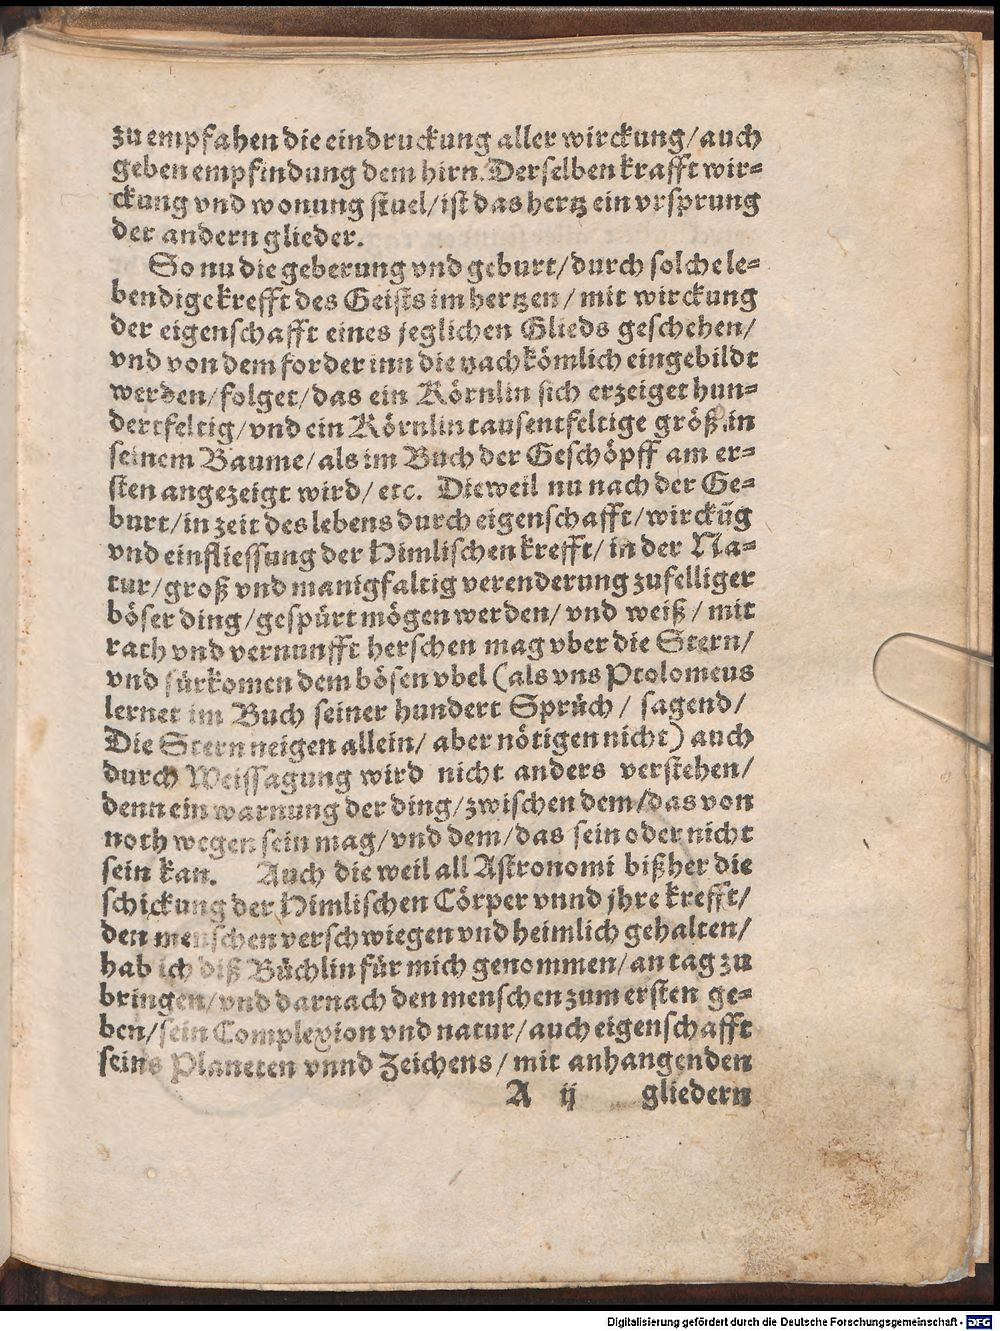 zu empfahen die eindruckung aller wirckung/ auch
geben empfindung dem hirn. Derselben krafft wir=
ckung vnd wonung stuel/ ist das hertz ein vrsprung
der andern glieder.
So nu die geberung vnd geburt/ durch solche le=
bendige krefft des Geists im hertzen/ mit wirckung
der eigenschafft eines jeglichen Glieds geschehen/
vnd von dem forder inn die nachkömlich eingebildt
werden/ folget/ das ein Körnlin sich erzeiget hun=
dertfeltig/ vnd ein Körnlin tausentfeltige größ in
seinem Baume/ als im Buch der Geschöpff am er=
sten angezeigt wird/ etc. Dieweil nu nach der Ge=
burt/ in zeit des lebens durch eigenschafft/ wirckūg
vnd einfliessung der Himlischen krefft/ in der Na=
tur/ groß vnd manigfaltig verenderung zufelliger
böser ding/ gespürt mögen werden/ vnd weiß/ mit
rath vnd vernunfft herschen mag vber die Stern/
vnd fürkomen dem bösen vbel (als vns Ptolomeus
lernet im Buch seiner hundert Sprüch/ sagend/
Die Stern neigen allein/ aber nötigen nicht) auch
durch Weissagung wird nicht anders verstehen/
denn ein warnung der ding/ zwischen dem/ das von
noth wegen sein mag/ vnd dem/ das sein oder nicht
sein kan. Auch die weil all Astronomi bißher die
schickung der Himlischen Cörper vnnd jhre krefft/
den menschen verschwiegen vnd heimlich gehalten/
hab ich diß Büchlin für mich genommen/ an tag zu
bringen/ vnd darnach den menschen zum ersten ge=
ben/ sein Complexion vnd natur/ auch eigenschafft
seins Planeten vnnd Zeichens/ mit anhangenden
A ij gliedern
Digitalisierung gefördert durch die Deutsche Forschungsgemeinschaft - DFG